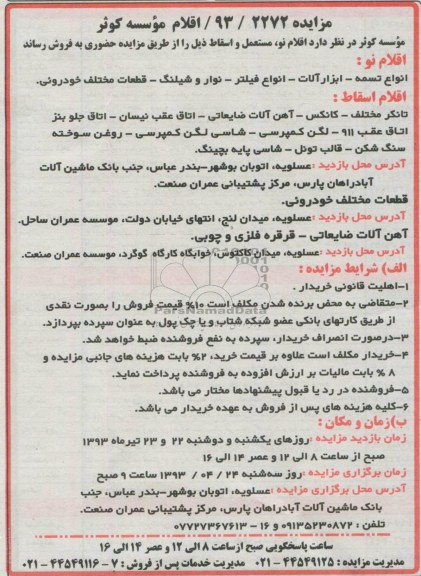 مزایده ۲۲۷۲ / ۹۳/ اقلام مؤسسه کوثر
مؤسسه کوثر در نظر دارد اقلام نو، مستعمل و اسقاط ذیل را از طریق مزایده حضوری به فروش رساند
اقلام نو :
انواع تسمه - ابزارآلات - انواع فیلتر - نوار و شیلنگ - قطعات مختلف خودرونی.
اقلام اسقاط :
تانکر مختلف - کانکس - آهن آلات ضایعاتی - اتاق عقب نیسان - اتاق جلو بنز
اتاق عقب ۹۱۱ - لگن کمپرسی - شاسی لگن کمپرسی - روغن سوخته
سنگ شکن - قالب تونل - شاسی پایه بچینگ.
آدرس محل بازدید :عسلویه، اتوبان بوشهر-بندر عباس، جنب بانک ماشین آلات
آبادراهان پارس، مرکز پشتیبانی عمران صنعت.
قطعات مختلف خودرونی.
آدرس محل بازدید :عسلویه، میدان لنج، انتهای خیابان دولت، موسسه عمران ساحل.
آهن آلات ضایعاتی - قرقره فلزی و چوبی.
آدرس محل بازدید :عسلویه، میدان کاکتوس، خوابگاه کارگاه گوگرد، موسسه عمران صنعت.
الف) شرایط مزایده :
۱-اهلیت قانونی خریدار .
۲-متقاضی به محض برنده شدن مکلف است ۱۰٪ قیمت فروش را بصورت نقدی
از طریق کارتهای بانکی عضو شبکه شتاب و یا چک پول به عنوان سپرده بپردازد.
۳-درصورت انصراف خریدار، سپرده به نفع فروشنده ضبط خواهد شد.
۴-خریدار مکلف است علاوه بر قیمت خرید، ۲٪ بابت هزینه های جانبی مزایده و
۸ ٪ بابت مالیات بر ارزش افزوده به فروشنده پرداخت نماید.
۵-فروشنده در رد یا قبول پیشنهادها مختار می باشد.
۶-کلیه هزینه های پس از فروش به عهده خریدار می باشد.
ب)زمان و مکان :
زمان بازدید مزایده :روزهای یکشنبه و دوشنبه ۲۲ و ۲۳ تیرماه ۱۳۹۳
صبح از ساعت ۸ الی ۱۲ و عصر ۱۴ الی ۱۶
زمان برگزاری مزایده :روز سه‌شنبه ۲۴ / ۰۴ / ۱۳۹۳ ساعت ۹ صبح
آدرس محل برگزاری مزایده :عسلویه، اتوبان بوشهر-بندر عباس، جنب
بانک ماشین آلات آبادراهان پارس، مرکز پشتیبانی عمران صنعت.
تلفن : ۰۹۱۳۵۲۳۰۸۷۲ و ۱۶ - ۰۷۷۲۷۳۶۷۶۱۳
ساعت پاسخگویی صبح ازساعت ۸ الی ۱۲ و عصر ۱۴ الی ۱۶
مدیریت مزایده : ۴۴۵۴۹۱۲۵ - ۰۲۱ مدیریت خدمات پس از فروش : ۷ - ۴۴۵۴۹۱۱۶ - ۰۲۱